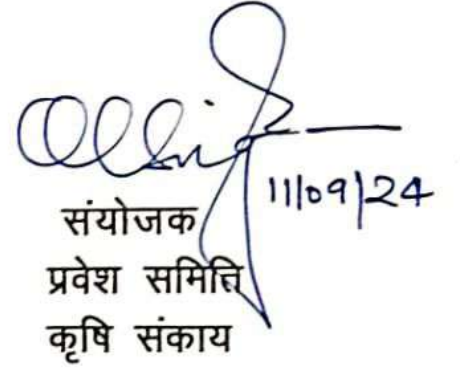 11/09/24
संयोजक
प्रवेश समिति
कृषि संकाय